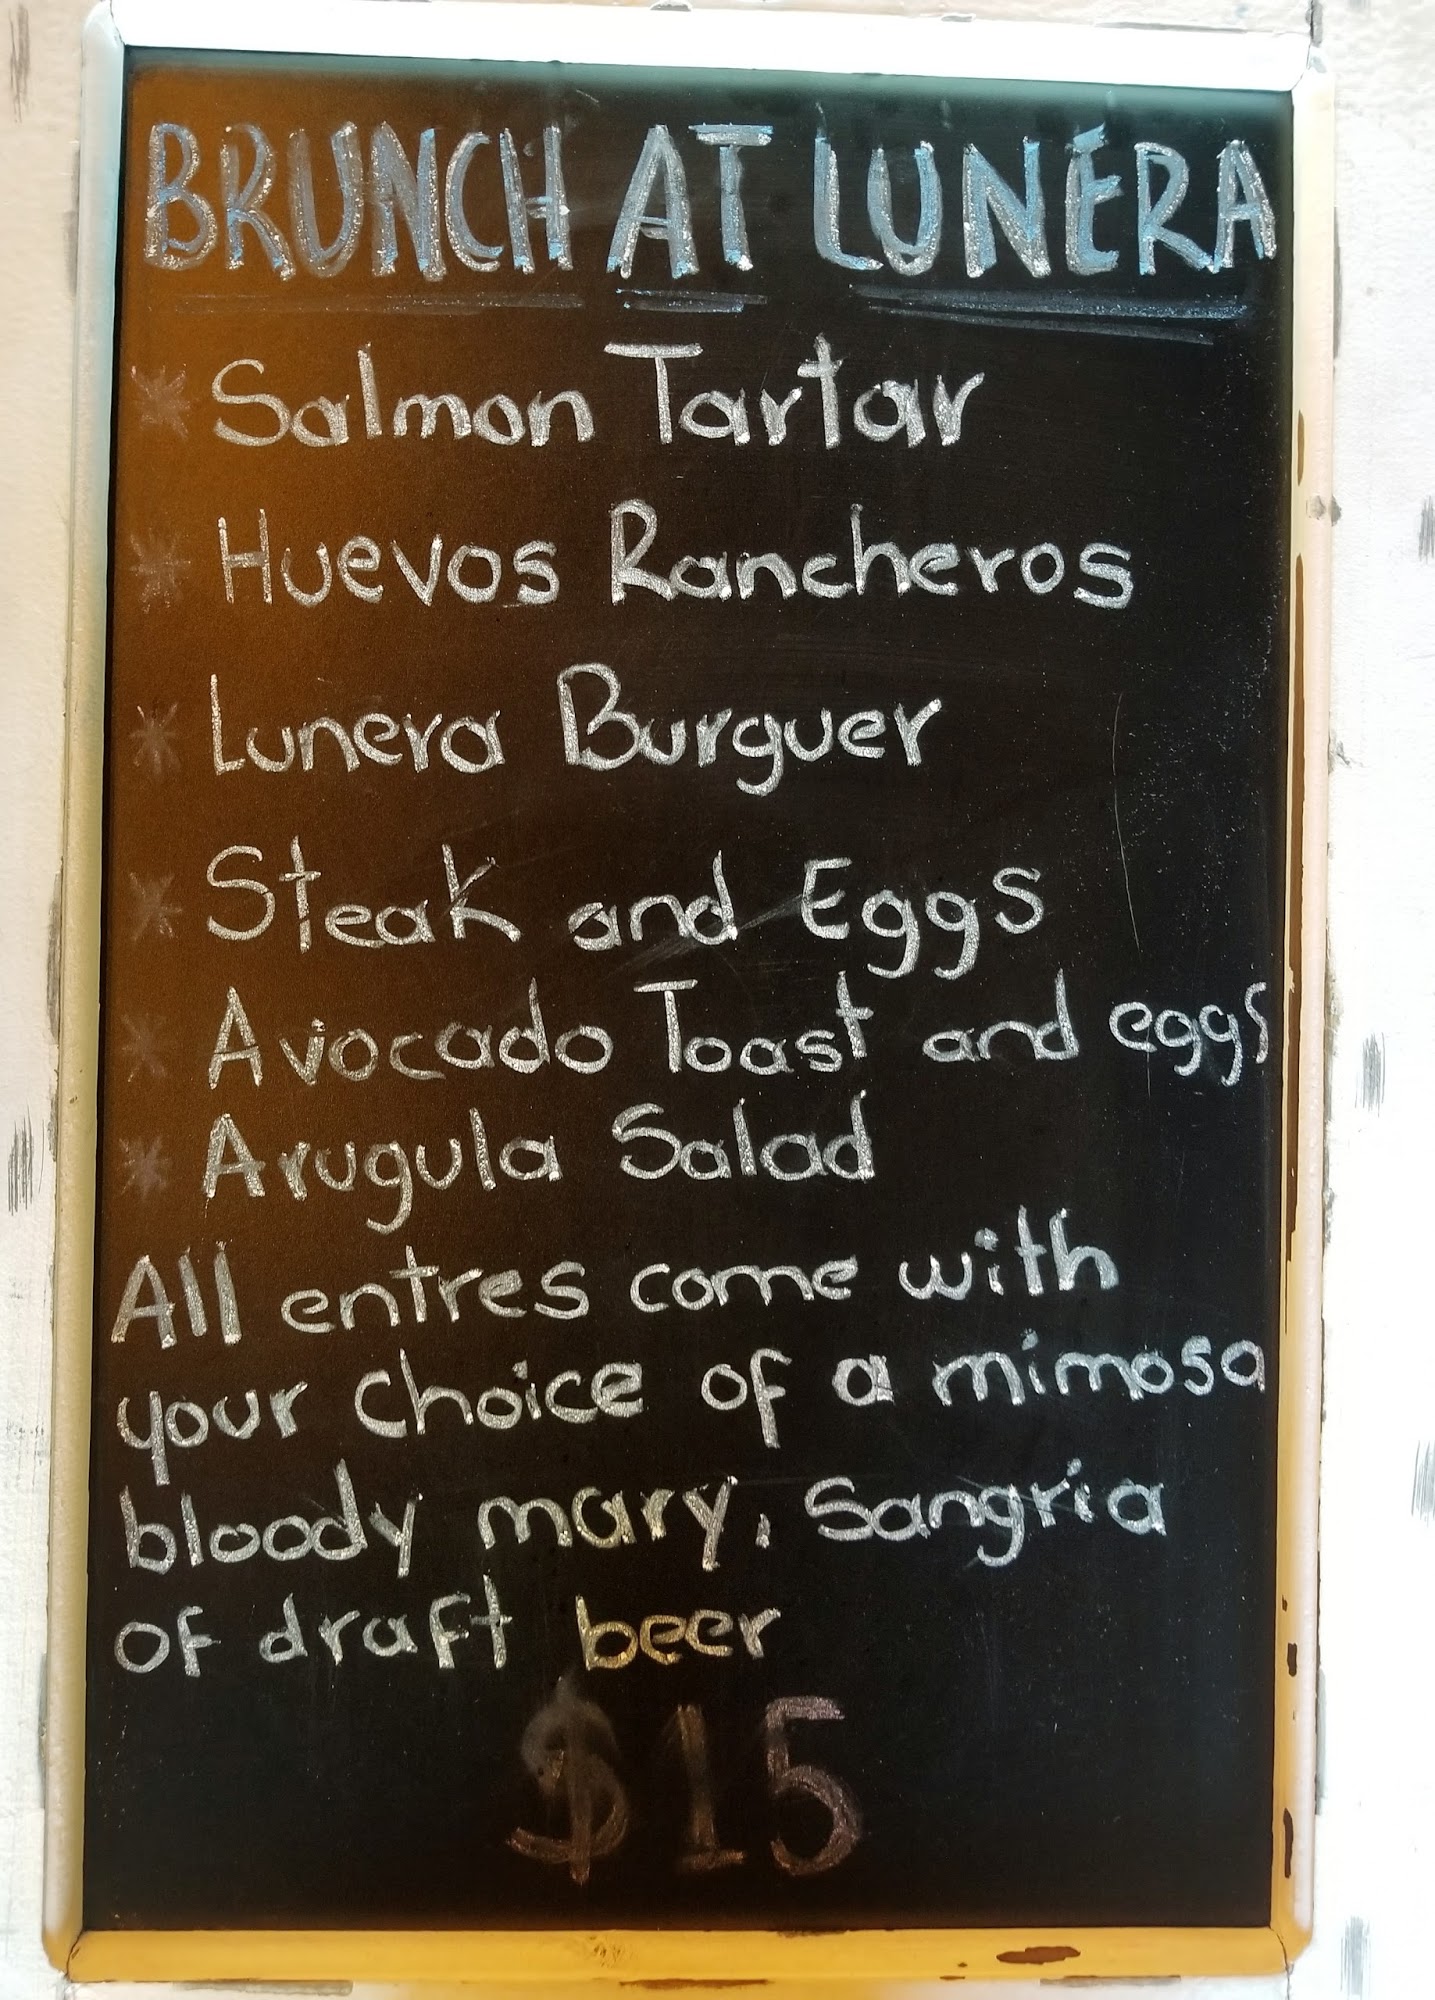 BRUNCH AT LUNERA
* Salmon Tartar
* Huevos Rancheros
* Lunera Burguer
* Steak and Eggs
* Aviocado Toast and eggs
* Arugula Salad
All entres come with
your choice of a mimosa
bloody mary, Sangria
of draft beer
$15